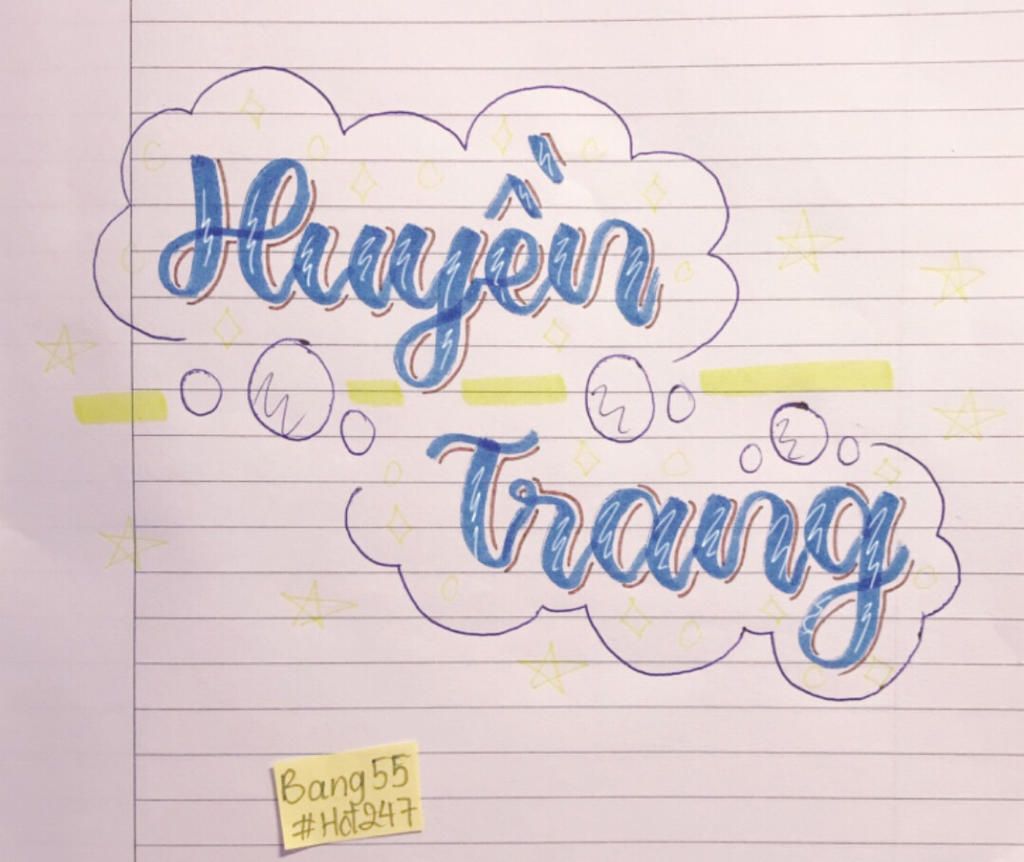 Huyền
Trang
Bang55
#Hot247